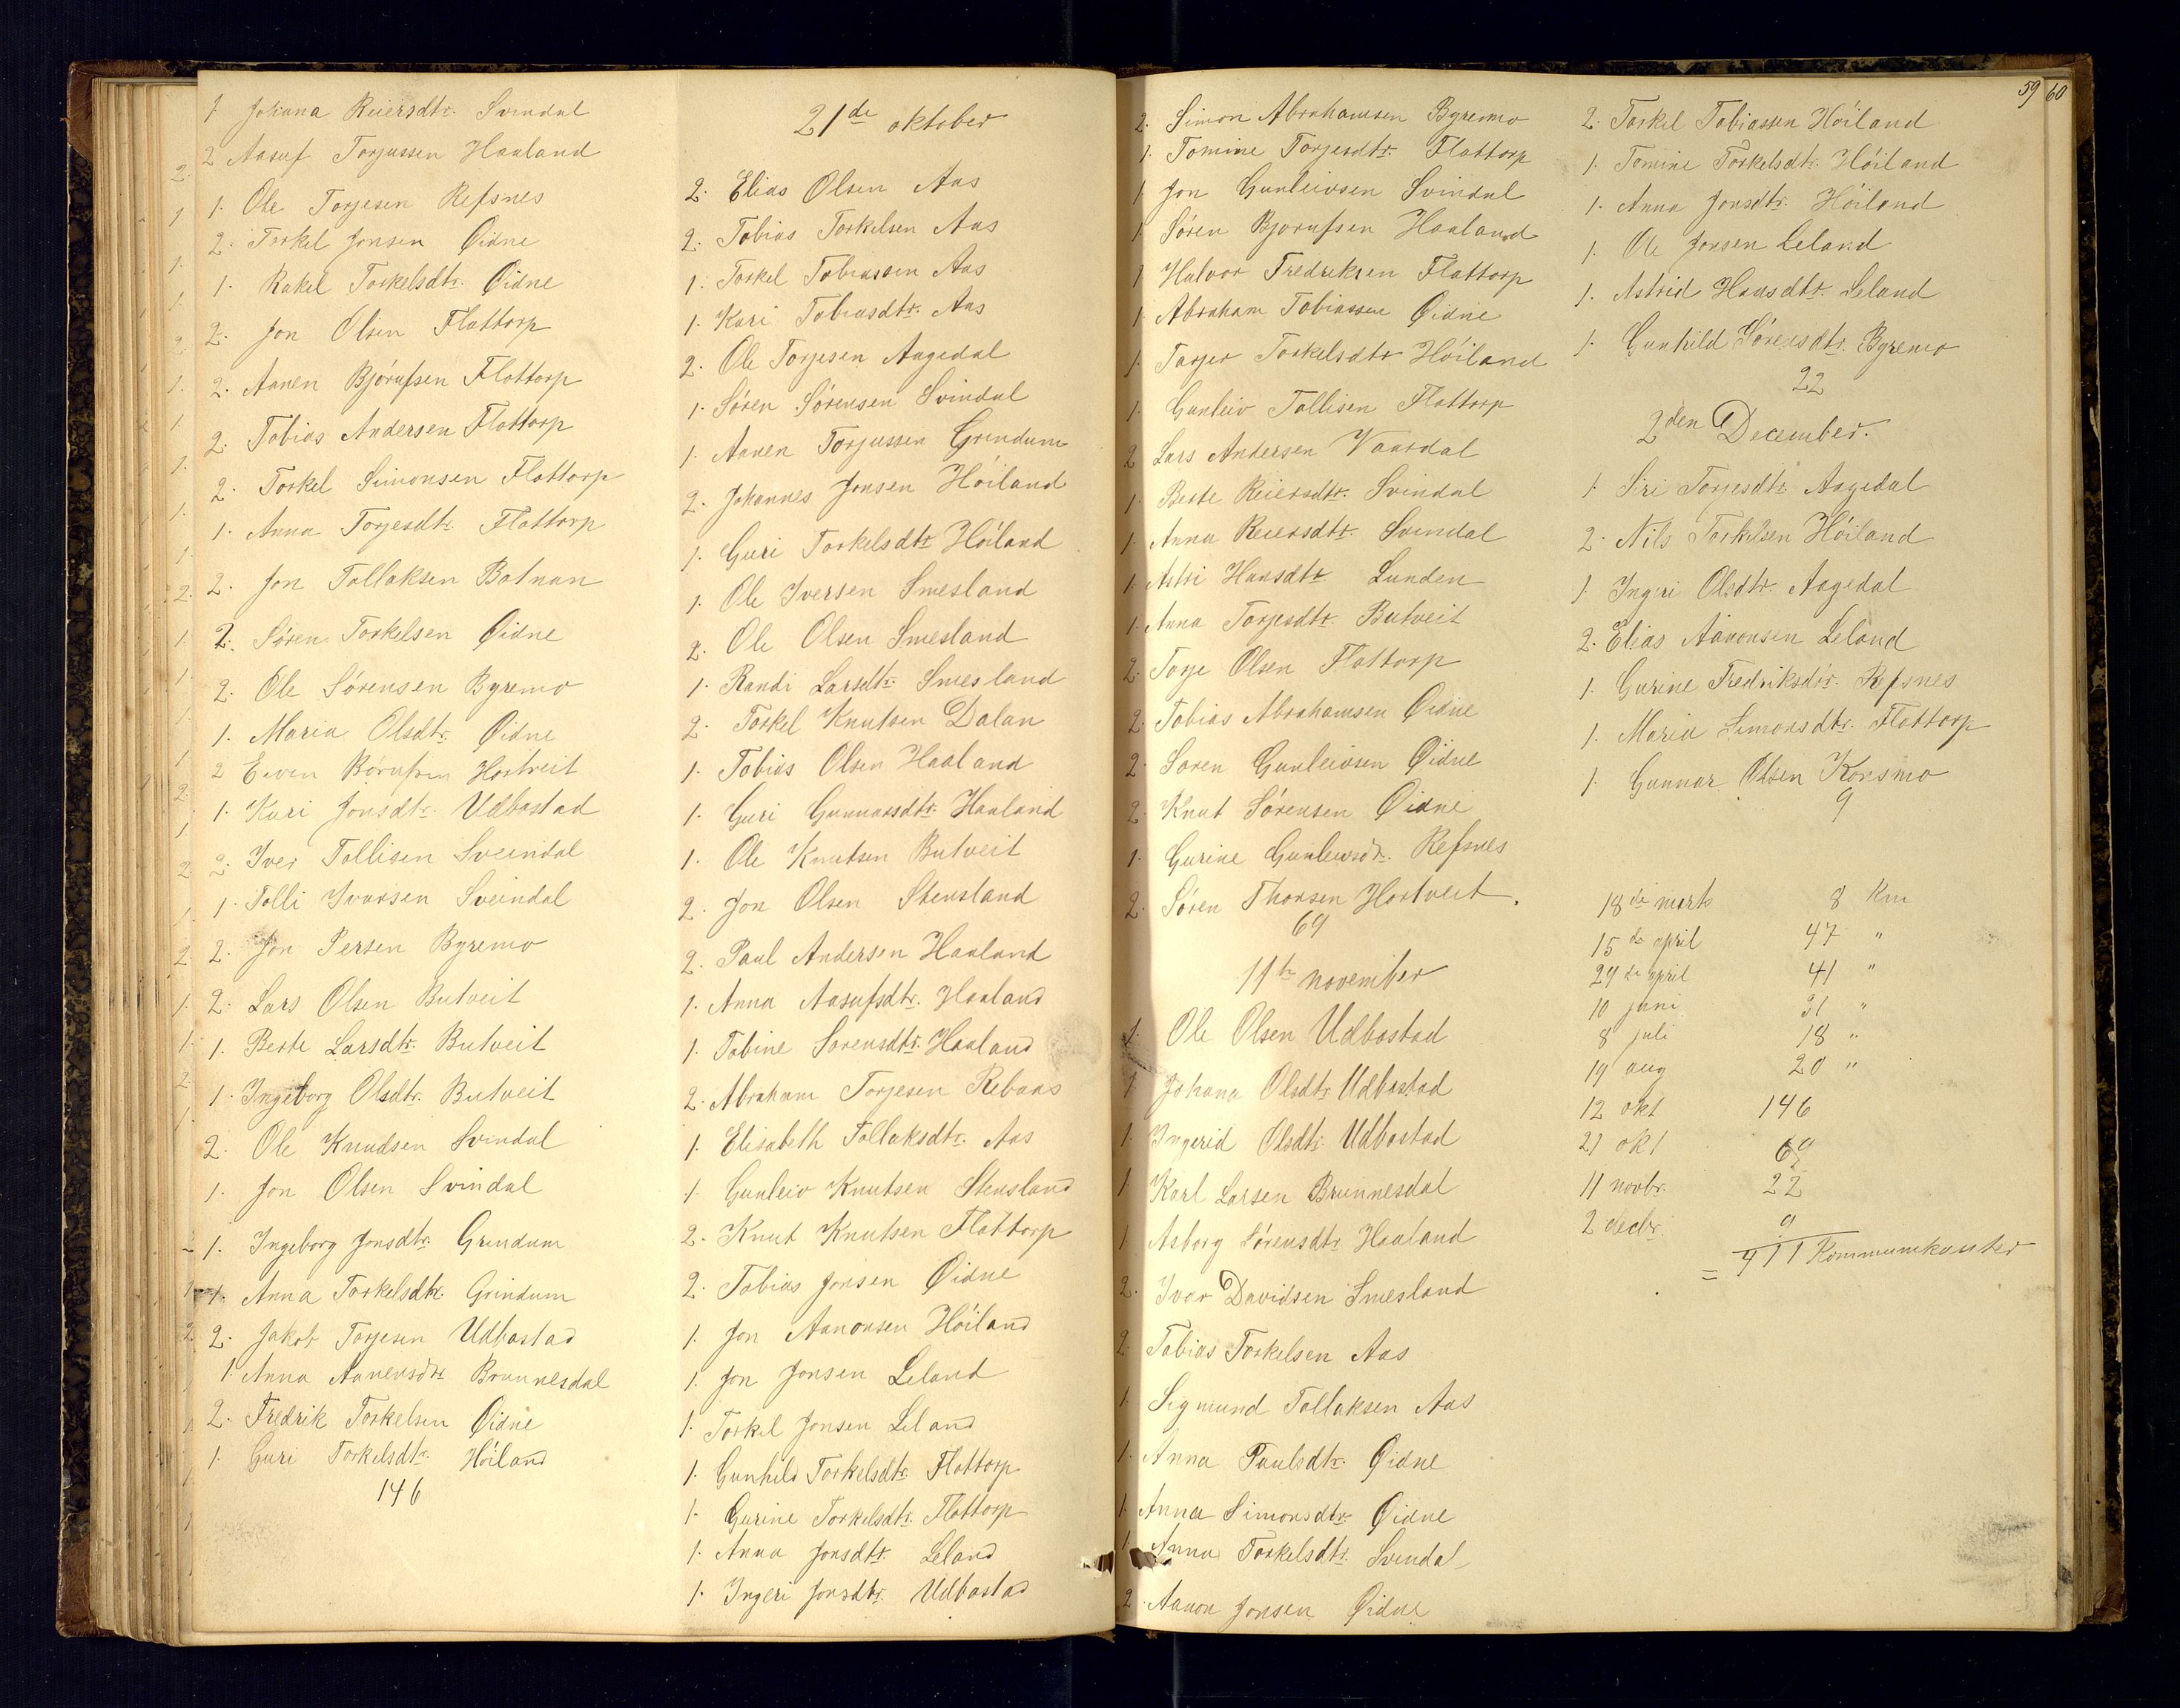 1 Johana Reiersdtr. Svindal
2 Aasuf Torjussen Haaland
1. Ole Torjesen Refsnes
2. Terkel Jonsen Øidne
1. Rakel Torkelsdtr. Øidne
2. Jon Olsen Flottorp
2. Aanen Bjørufsen Flottorp
2. Tobias Andersen Flottorp
2. Torkel Simonsen Flottorp
1. Anna Torjesdtr. Flottorp
2. Jon Tollaksen Botnan
2. Søren Torkelsen Øidne
2. Ole Sørensen Byremo
1. Maria Olsdtr. Øidne
2 Even Børufsen Hortveit
1. Kari Jonsdtr. Udbostad
2. Iver Tollisen Sveindal
1. Tolli Ivarsen Sveindal
2. Jon Persen Byremo
2. Lars Olsen Butveit
1. Berte Larsdtr. Butveit
1. Ingeborg Olsdtr. Butveit
2. Ole Knudsen Svindal
1. Jon Olsen Svindal
1. Ingeborg Jonsdtr. Grindum
1. Anna Torkelsdtr. Grindum
2. Jakob Torjesen Udbostad
1. Anna Aanensdtr Brunnesdal
2. Fredrik Torkelsen Øidne
1. Guri Torkelsdtr. Høiland
146
21de oktober
2. Elias Olsen Aas
2. Tobias Torkelsen Aas
1. Torkel Tobiassen Aas
1. Kari Tobiasdtr. Aas
2. Ole Torjesen Aagedal
1. Søren Sørensen Svindal
1. Aanen Torjussen Grindum
2. Johannes Jonsen Høiland
1. Guri Torkelsdtr Høiland
1. Ole Iversen Smesland
2. Ole Olsen Smesland
1. Randi Larsdtr. Smesland
2. Torkel Knutsen Dalan
1. Tobias Olsen Haaland
1. Guri Gunnarsdtr. Haaland
1. Ole Knutsen Butveit
2. Jon Olsen Stensland
2. Paul Andersen Haaland
1. Anna Aasufsdtr. Haaland
1. Tobine Sørensdtr. Haaland
2. Abraham Torjesen Rebaas
1. Elisabeth Tollaksdtr. Aas
1. Gunleiv Knutsen Stensland
2. Knut Knutsen Flottorp
2. Tobias Jonsen Øidne
1. Jon Aanonsen Høiland
1. Jon Jonsen Leland
1. Torkel Jonsen Leland
1. Gunhild Torkelsdtr. Flottorp
1. Gurine Torkelsdtr. Flottorp
1. Anna Jonsdtr. Leland
1. Ingeri Jonsdtr. Udbostad
59 60
2. Simon Abrahamsen Byremo
1. Tomine Torjesdtr. Flottorp
1 Jon Gunleivsen Svindal
1 Søren Bjorufsen Haaland
1 Halvor Fredriksen Flottorp
1 Abraham Tobiassen Øidne
1. Torjer Torkelsdtr Høiland
1. Gunleiv Tollisen Flottorp
2 Lars Andersen Vaardal
1. Berte Reiersdtr. Svindal
1. Anna Reiersdtr. Svindal
1. Astri Hansdtr Lunden
1. Anna Torjesdtr. Butveit
2. Torje Olsen Flottorp
2. Tobias Abrahamsen Øidne
2. Søren Gunleivsen Øidne
2. Knut Sørensen Øidne
1. Gurine Gunleivsdr. Refsnes
2. Søren Thorsen Hortveit.
69
11te november
1. Ole Olsen Udbostad
1 Johana Olsdtr. Udbostad
1. Ingerid Olsdtr. Udbostad
1 Karl Larsen Brunnesdal
1 Asborg Sørensdtr. Haaland
2. Ivar Davidsen Smesland
2. Tobias Torkelsen Aas
1. Sigmund Tollaksen Aas
1. Anna Paulsdtr. Øidne
1. Anna Simonsdtr. Øidne
1. Anna Torkelsdtr. Svindal
2. Aanon Jonsen Øidne
2. Torkel Tobiassen Høiland
1. Tomine Torkelsdtr. Høiland
1. Anna Jonsdtr. Høiland
1. Ole Jonsen Leland
1. Astrid Hansdtr. Leland
1. Gunhild Sørensdtr. Byremo
22
2den December.
1. Siri Torjesdtr. Aagedal
2. Nils Torkelsen Høiland
1 Ingri Olsdtr. Aagedal
2. Elias Aanonsen Leland
1. Gurine Fredriksdtr. Refsnes
1. Maria Simonsdtr. Flottorp
1. Gunnar Olsen Korsmo
9
18de marts 8 Km
15de april 47 "
29de april 41 "
10 juni 31 "
8 juli 18 "
19 aug 20 "
12 okt 146
21 okt 69
11 novbr. 22
2 decbr. 9
= 411 Kommunikanter